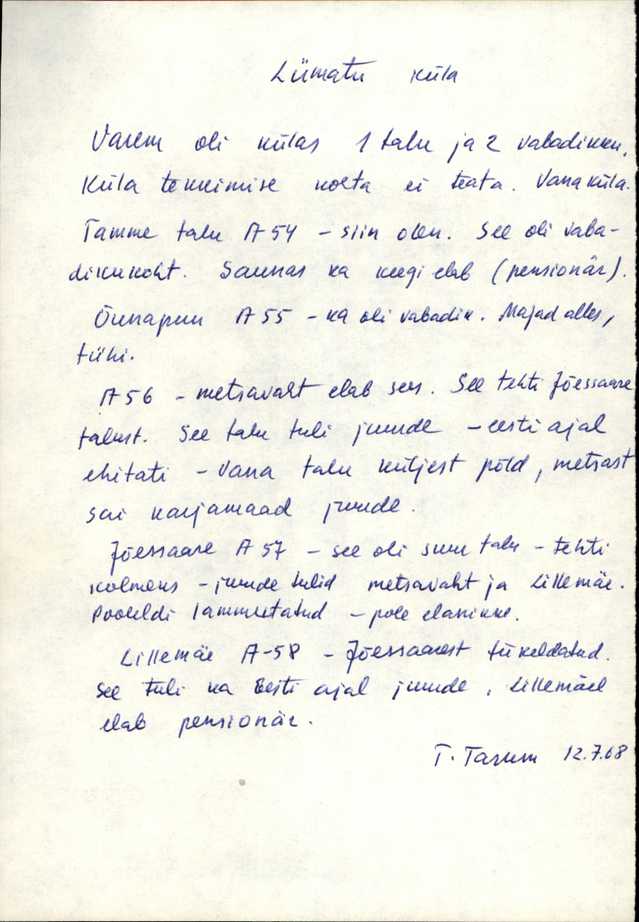 Liimatu küla
Varem oli külas 1 talu ja 2 vabadikku.
Küla tekkimise kohta ei teata. Vana küla.
Tamme talu A 54 – siin olen. See oli vaba-
dikukoht. Saunas ka keegi elab (pensionär).
Õunapuu A 55 – ka oli vabadik. Majad alles,
tühi.
A 56 – metsavaht elab sees. See tehti Jõessaare
talust. See talu tuli juurde – eesti ajal
ehitati – vana talu küljest põld, metsast
sai karjamaad juurde.
Jõessaare A 57 – see oli suur talu – tehti
kolmeks – juurde tulid metsavaht ja Lillemäe.
Pooleldi lammutatud – pole elanikke.
Lillemäe A-58 – Jõessaarest tükeldatud.
See tuli ka Eesti ajal juurde, Lillemäel
elab pensionär.
T. Tasum 12.7.68